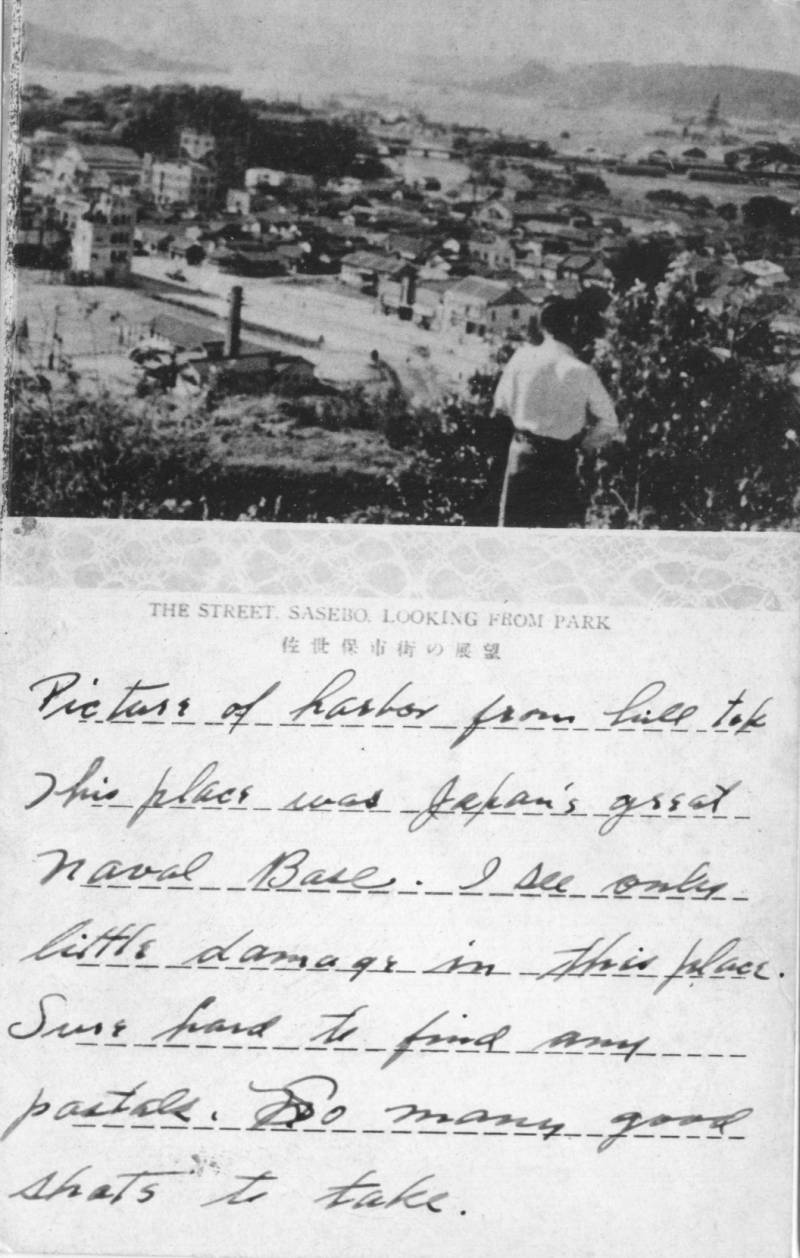 THE STREET, SASEBO, LOOKING FROM PARK
佐世保市街の展望
Picture of harbor from hill top
This place was Japan's great
Naval Base. I see only
little damage in this place.
Sure hard to find any
postals. So many good
shots to take.